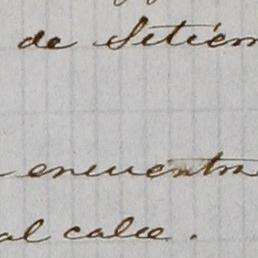 de Setiem
encuentra
al calce.